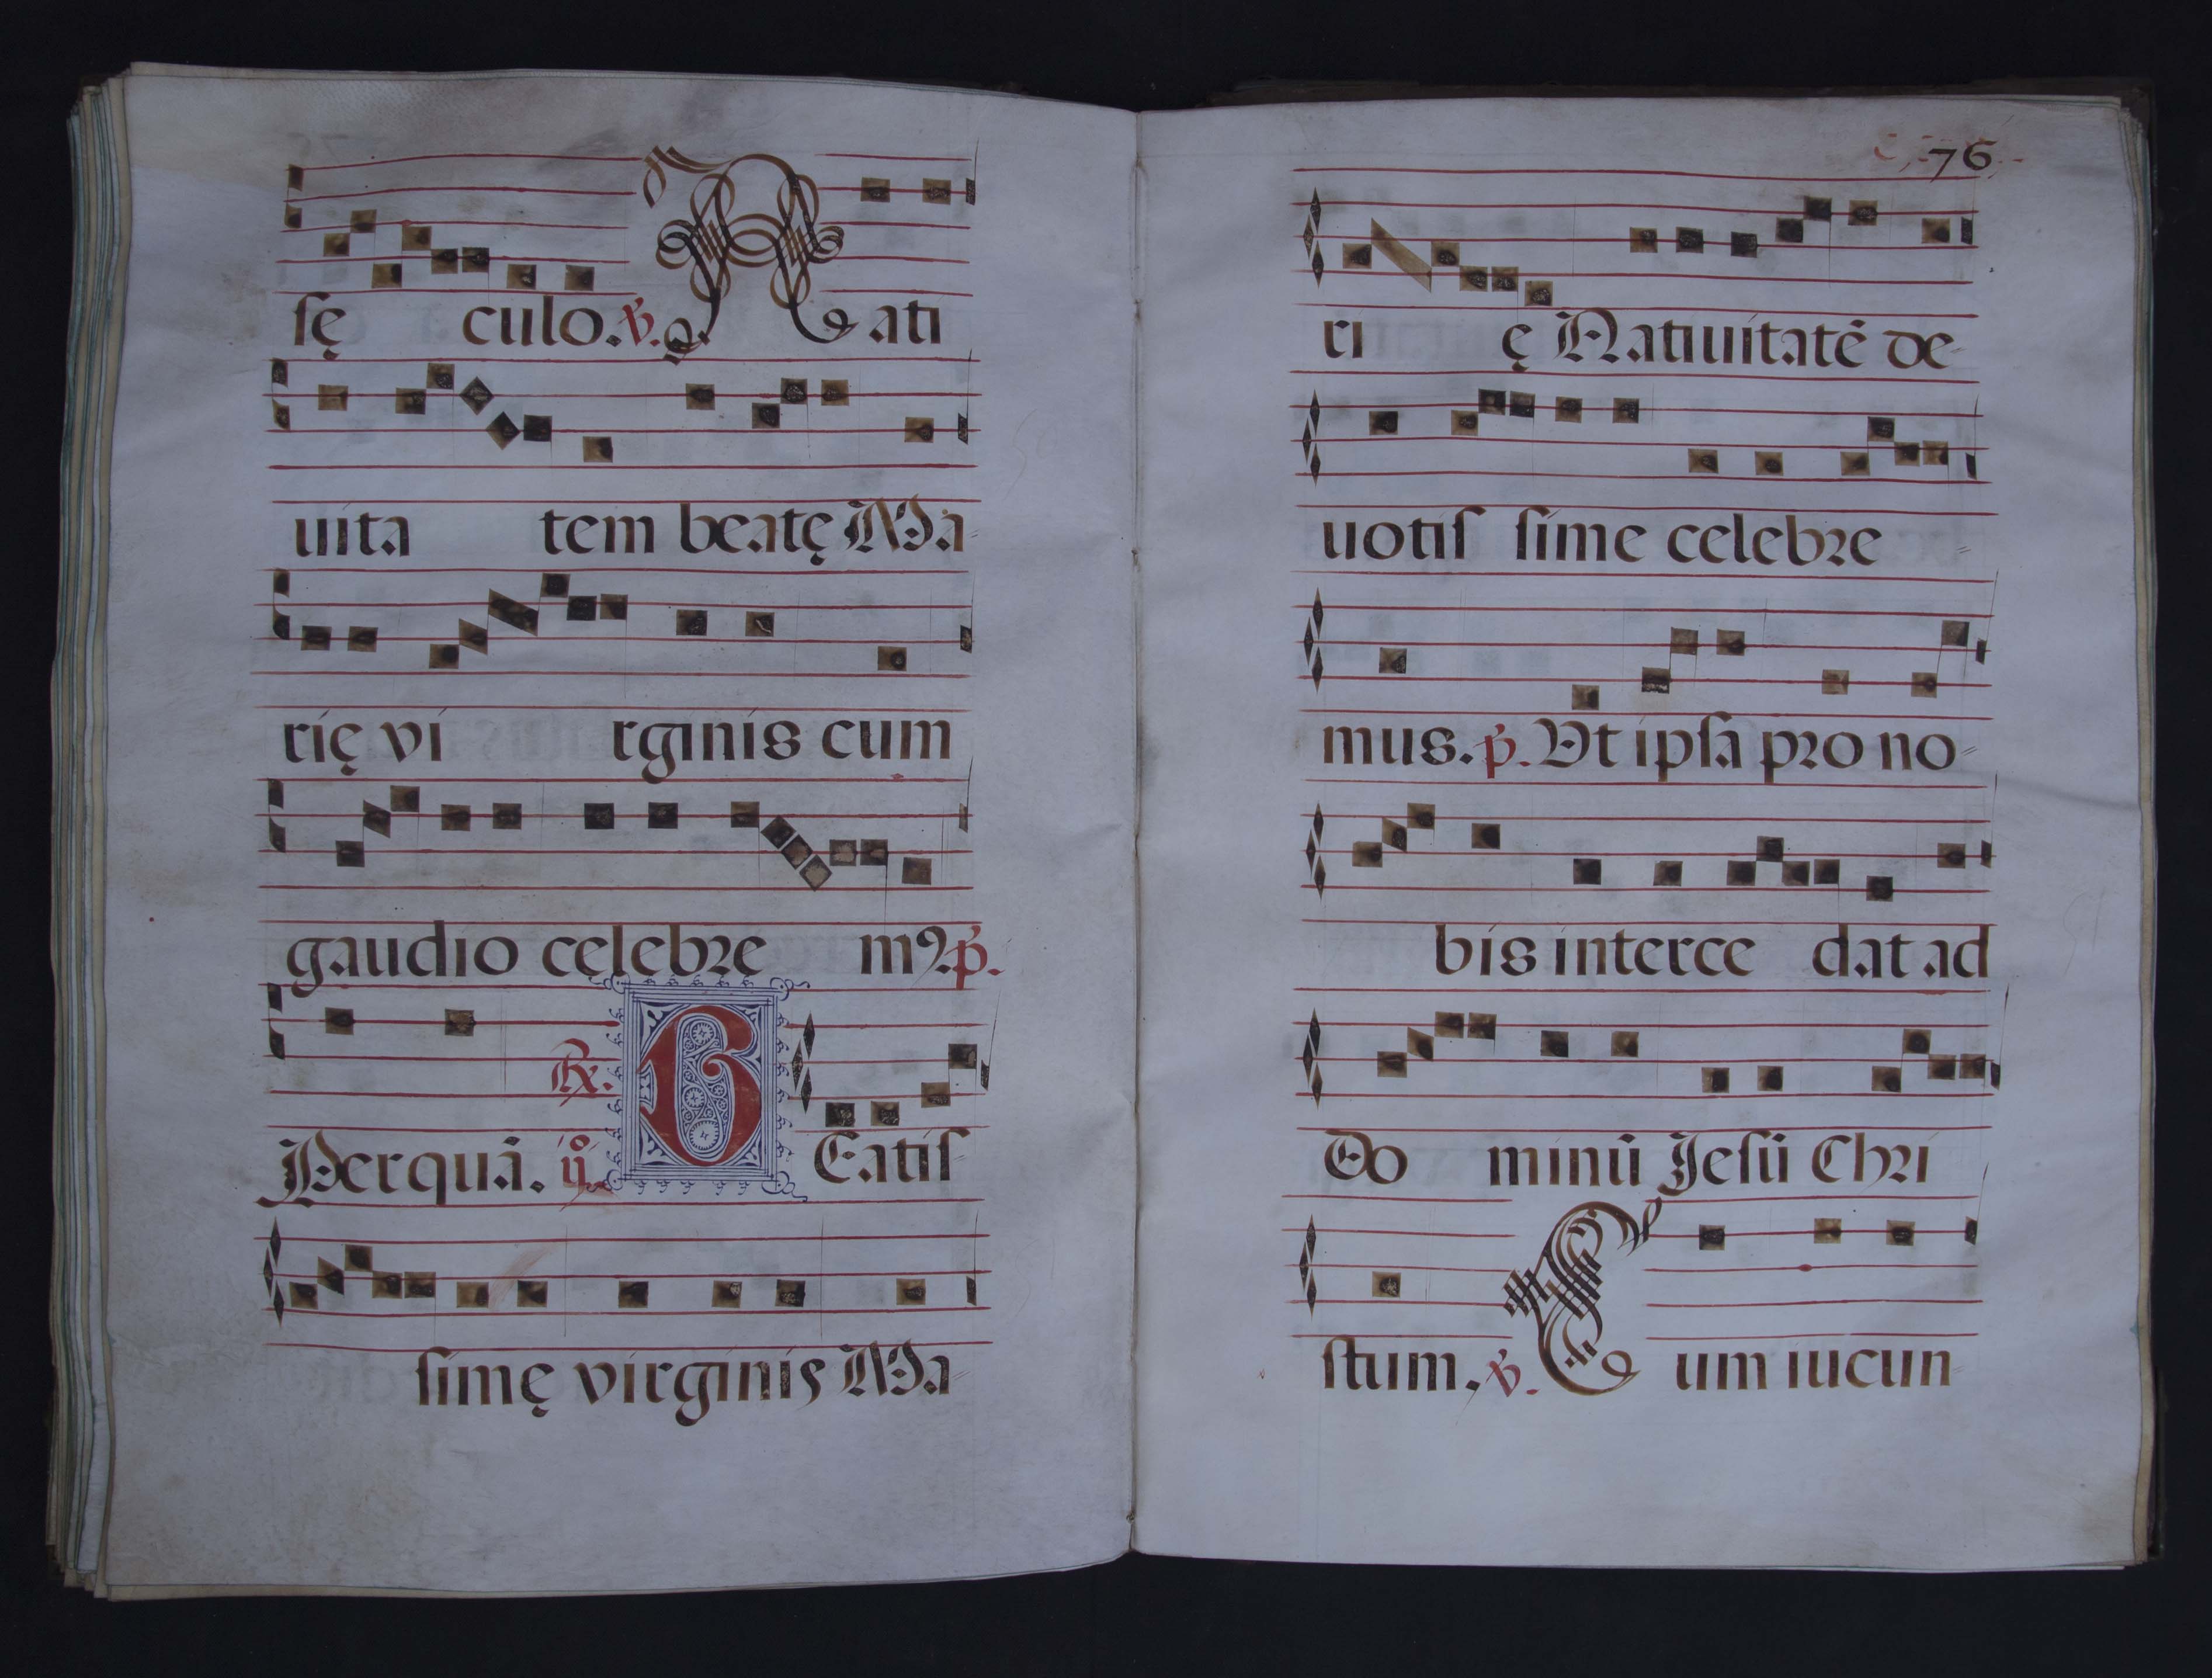 sę culo. ỽ. Nati
uita tem beatę Ma
rię vi rginis cum
gaudio celebre mꝰ. p̃.
Perquã. ℟. ijº BEatis
simę virginis Ma
76
ri ę Natiuitatẽ de-
uotis sime celebre-
mus. p̃. Vt ipsa pro no-
bis interce dat ad
Do minũ Jesũ Chri
stum. ỽ. Cum iucun-